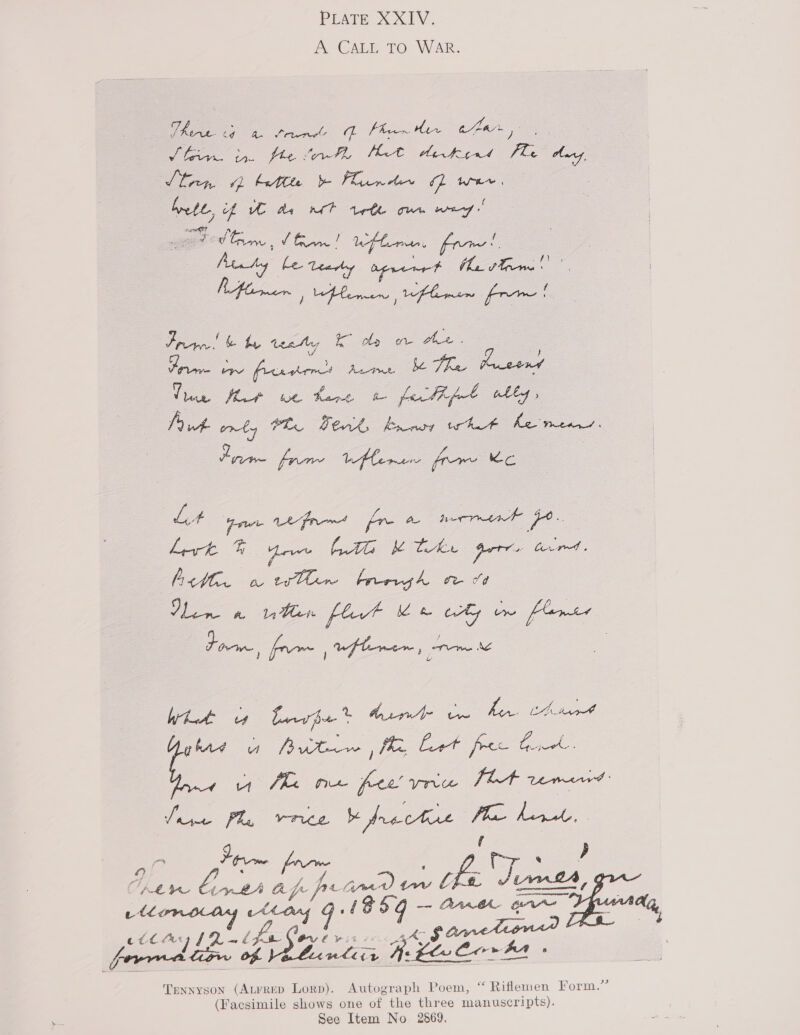 PLATE XXIV.
A CALL TO WAR.
There is a sound of thunder afar,
Storm in the South that darkens the day,
Storm of battle & thunder of war.
Well, if it do not roll our way!
Storm, Storm! riflemen form!
Ready be ready against the storm!
Riflemen, riflemen, riflemen form!
Form! & be ready to do or die.
Form in freedom's name & the Queen's
True that we have a faithful ally,
But only the Devil knows what he means.
Form form riflemen form &c
Let your reforms for a moment go.
Look to your butts & take good aims.
Better a rotten borough or so
Than a rotten fleet & a city in flames
Form, form, riflemen, form &c
What is Europe? in her chains
Yours is Britain, the last free land.
Yours is the one free voice that remains.
Save the voice & practise the hand.
Form form
lines appeared in the Times, on
Monday May 9. 1859 — and on Thursday
May 12 - the Government sanctioned the
formation of Volunteer Rifle Corps.
TENNYSON (ALFRED LORD). Autograph Poem, “Riflemen Form.”
(Facsimile shows one of the three manuscripts).
See Item No 2869.